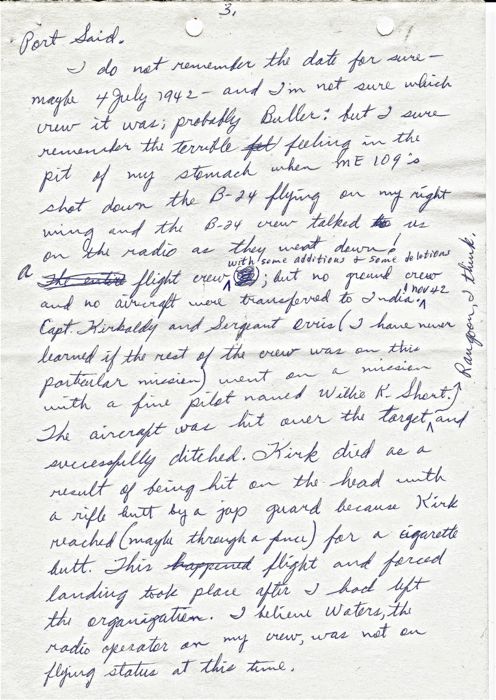 3.
Port Said.
I do not remember the date for sure —
maybe 4 July 1942 — and I'm not sure which
crew it was; probably Buller: but I sure
remember the terrible fel feeling in the
pit of my stomach when ME 109's
shot down the B-24 flying on my right
wing and the B-24 crew talked to us
on the radio as they went down!
with some additions & some deletions
A The entire flight crew ; but no ground crew
and no aircraft were transferred to India! Nov 42
Capt. Kirkaldy and Sergeant Ovis (I have never
learned if the rest of the crew was on this
particular mission) went on a mission
with a fine pilot named Willie K. Short.
Rangoon, I think.
The aircraft was hit over the target and
successfully ditched. Kirk died as a
result of being hit on the head with
a rifle butt by a jap guard because Kirk
reached (maybe through a fence) for a cigarette
butt. This happened flight and forced
landing took place after I had left
the organization. I believe Waters, the
radio operator on my crew, was not on
flying status at this time.